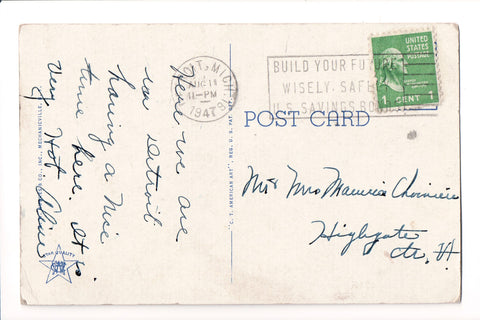 Here we are
in Detroit
having a nice
time here. It is
Very Hot. Aline
DETROIT, MICH.
AUG 11
11-PM
1947
BUILD YOUR FUTURE
WISELY, SAFELY
U.S. SAVINGS BONDS
UNITED
STATES
POSTAGE
1 CENT 1
POST CARD
"C.T. AMERICAN ART" REG. U.S. PAT. OFF.
CO., INC., MECHANICVILLE,
STAR QUALITY
Mr & Mrs Maurice Choiniere
Highgate
Ctr. Vt.